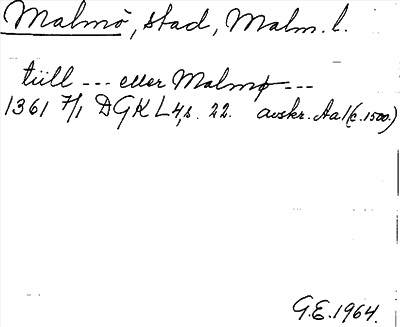 Malmö, stad, Malm. l.
tiill --- eller Malmø ---
1361 7/1 DGK L 4, s. 22. avskr. Aa 1 (c. 1500.)
G.E. 1964.